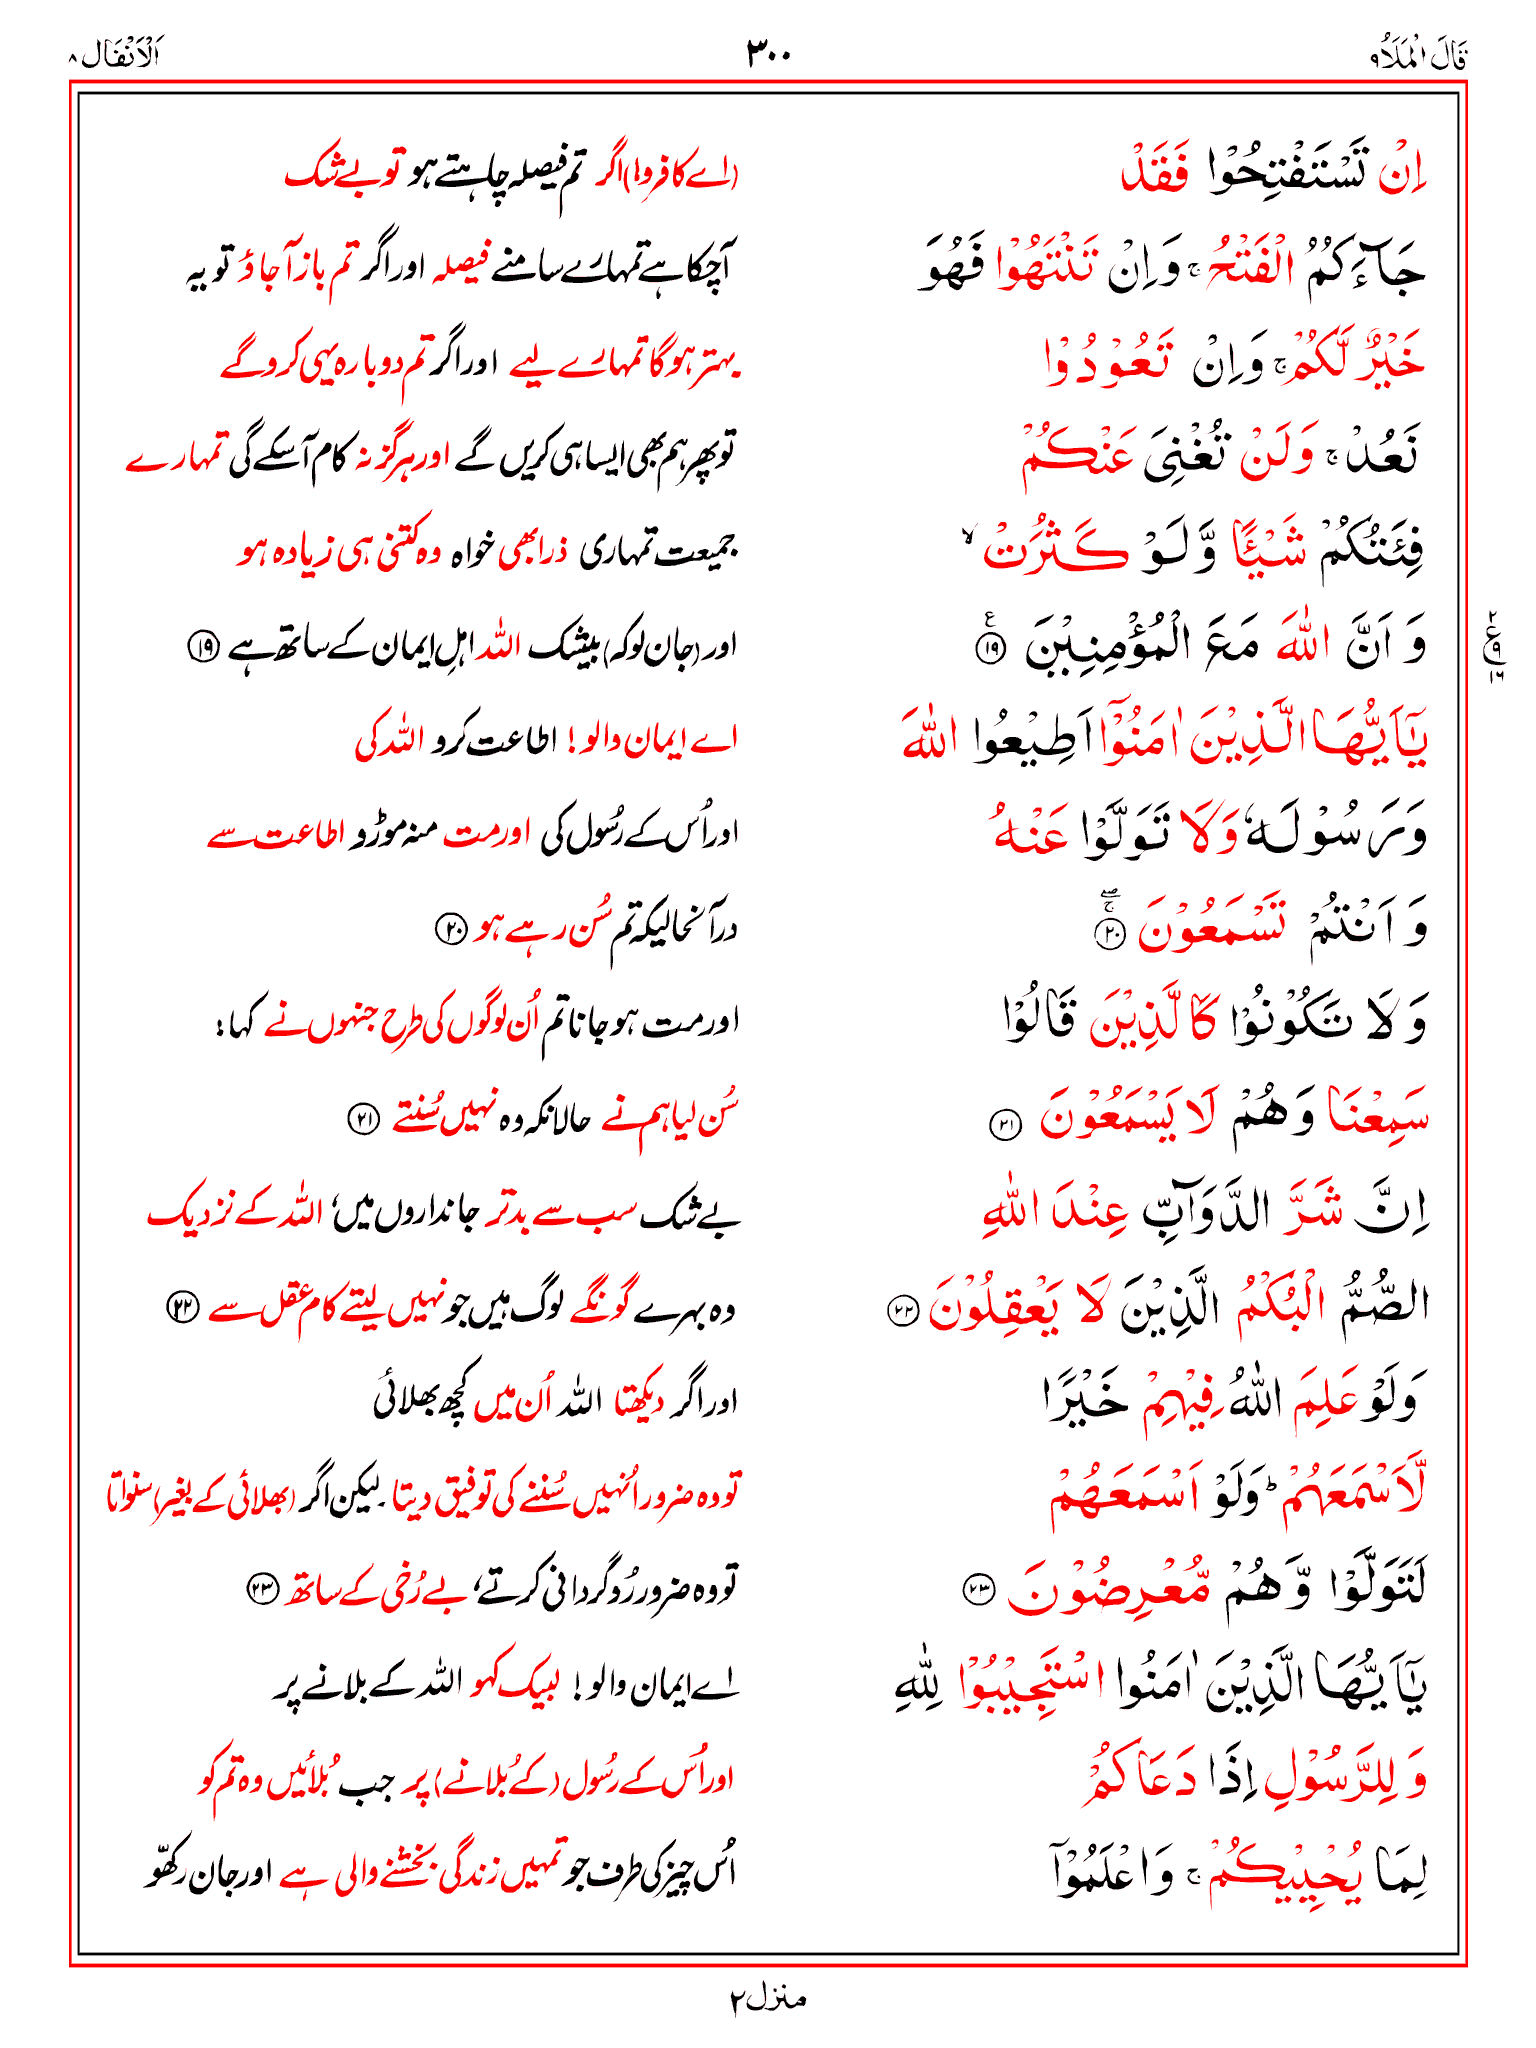 قَالَ الْمَلَاُ ۹ ۳۰۰ اَلْاَنْفَال ۸
اِنْ تَسْتَفْتِحُوْا فَقَدْ (اے کافرو!) اگر تم فیصلہ چاہتے ہو تو بے شک
جَآءَكُمُ الْفَتْحُ ۚ وَاِنْ تَنْتَهُوْا فَهُوَ آچکا ہے تمہارے سامنے فیصلہ اور اگر تم باز آجاؤ تو یہ
خَيْرٌ لَّكُمْ ۚ وَاِنْ تَعُوْدُوْا بہتر ہوگا تمہارے لیے اور اگر تم دوبارہ یہی کرو گے
نَعُدْ ۚ وَلَنْ تُغْنِىَ عَنْكُمْ تو پھر ہم بھی ایسا ہی کریں گے اور ہرگز نہ کام آسکے گی تمہارے
فِئَتُكُمْ شَيْـًٔا وَّلَوْ كَثُرَتْ ۙ جمیعت تمہاری ذرا بھی خواہ وہ کتنی ہی زیادہ ہو
وَ اَنَّ اللّٰهَ مَعَ الْمُؤْمِنِيْنَ ⑲ ع اور (جان لو کہ) بیشک اللہ اہلِ ایمان کے ساتھ ہے ⑲
۲ ع ۹ ۱۶
يٰۤاَيُّهَا الَّذِيْنَ اٰمَنُوْۤا اَطِيْعُوا اللّٰهَ اے ایمان والو! اطاعت کرو اللہ کی
وَرَسُوْلَهٗ وَلَا تَوَلَّوْا عَنْهُ اور اُس کے رسُول کی اور مت منہ موڑو اطاعت سے
وَ اَنْتُمْ تَسْمَعُوْنَ ⑳ ۚۖ درآنحالیکہ تم سُن رہے ہو ⑳
وَلَا تَكُوْنُوْا كَالَّذِيْنَ قَالُوْا اور مت ہو جانا تم اُن لوگوں کی طرح جنہوں نے کہا:
سَمِعْنَا وَهُمْ لَا يَسْمَعُوْنَ ㉑ سُن لیا ہم نے حالانکہ وہ نہیں سُنتے ㉑
اِنَّ شَرَّ الدَّوَآبِّ عِنْدَ اللّٰهِ بے شک سب سے بدتر جانداروں میں، اللہ کے نزدیک
الصُّمُّ الْبُكْمُ الَّذِيْنَ لَا يَعْقِلُوْنَ ㉒ وہ بہرے گونگے لوگ ہیں جو نہیں لیتے کام عقل سے ㉒
وَلَوْ عَلِمَ اللّٰهُ فِيْهِمْ خَيْرًا اور اگر دیکھتا اللہ اُن میں کچھ بھلائی
لَّاَسْمَعَهُمْ ؕ وَلَوْ اَسْمَعَهُمْ تو وہ ضرور اُنہیں سُننے کی توفیق دیتا۔ لیکن اگر (بھلائی کے بغیر) سنواتا
لَتَوَلَّوْا وَّهُمْ مُّعْرِضُوْنَ ㉓ تو وہ ضرور رُوگردانی کرتے، بے رُخی کے ساتھ ㉓
يٰۤاَيُّهَا الَّذِيْنَ اٰمَنُوا اسْتَجِيْبُوْا لِلّٰهِ اے ایمان والو! لبیک کہو اللہ کے بلانے پر
وَ لِلرَّسُوْلِ اِذَا دَعَاكُمْ اور اُس کے رسُول (کے بُلانے) پر جب بُلائیں وہ تم کو
لِمَا يُحْيِيْكُمْ ۚ وَاعْلَمُوْۤا اُس چیز کی طرف جو تمہیں زندگی بخشنے والی ہے اور جان رکھّو
منزل ۲